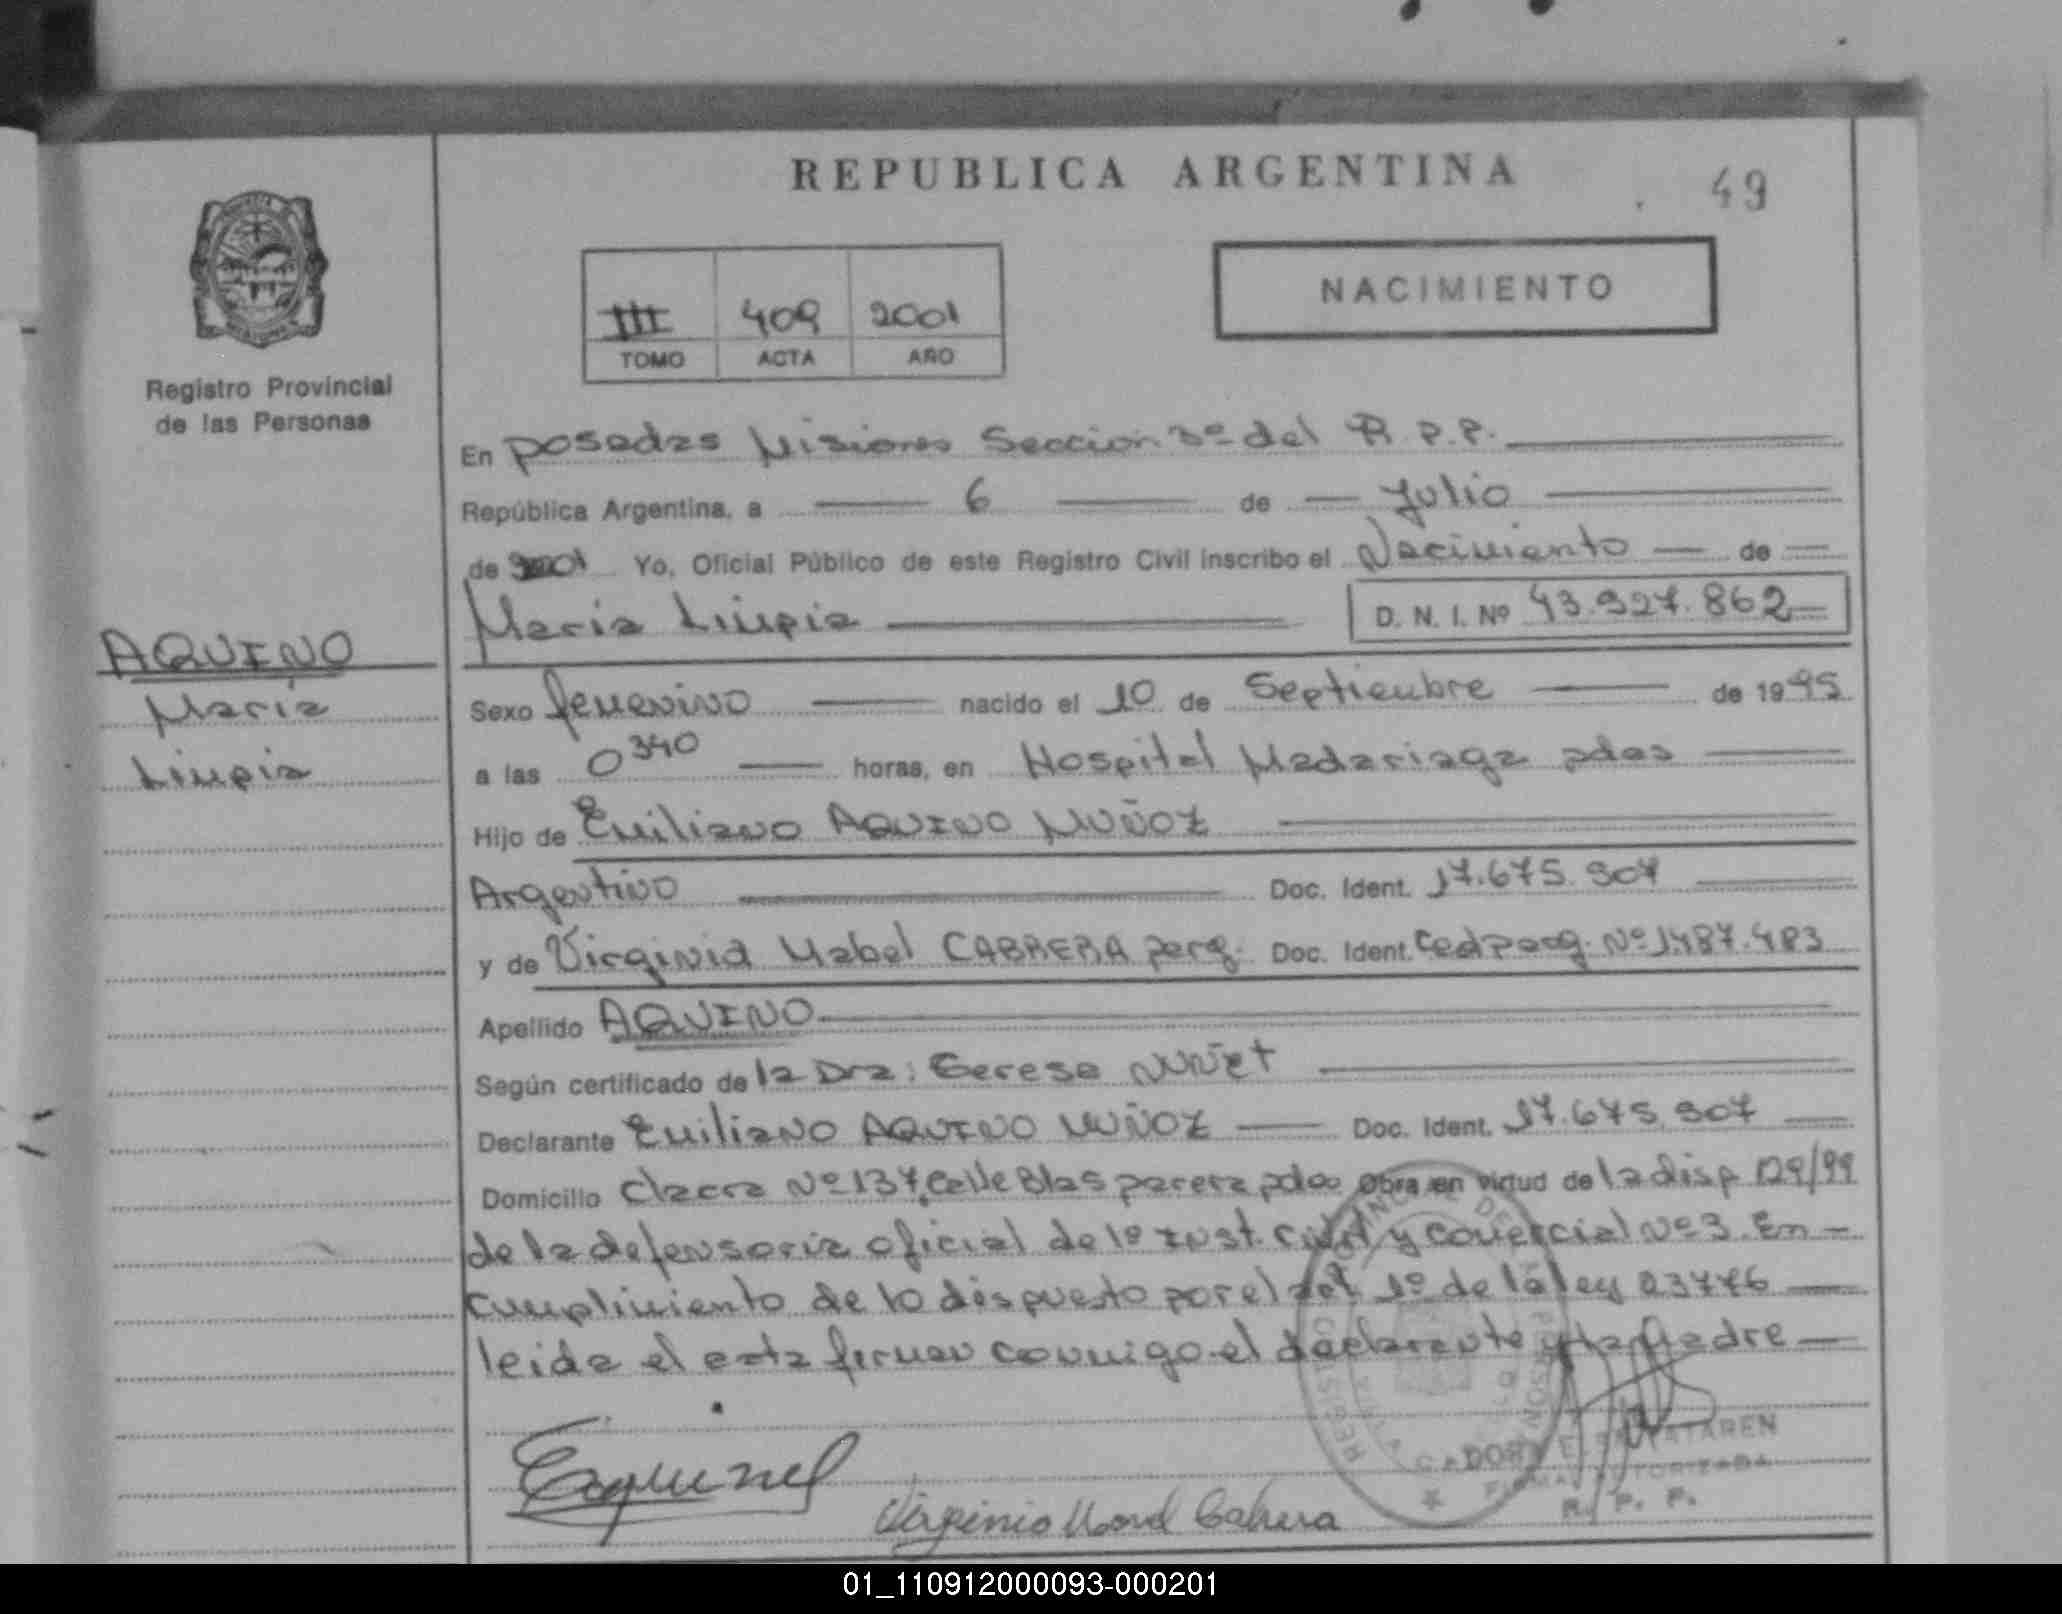 REPUBLICA ARGENTINA
49
III 409 2001
TOMO ACTA AÑO
NACIMIENTO
Registro Provincial
de las Personas
En posadas Misiones Seccion 3º del R.P.P.
República Argentina, a 6 de Julio
de 2001 Yo, Oficial Público de este Registro Civil inscribo el Nacimiento de
Maria Limpia D. N. I. Nº 43.927.862
AQUINO
Maria
Limpia
Sexo femenino nacido el 10 de Septiembre de 1995
a las 0340 horas, en Hospital Madariaga pdas
Hijo de Emiliano AQUINO MUÑOZ
Argentino Doc. Ident. 17.675.907
y de Virginia Mabel CABRERA parg. Doc. Ident. Ced Parag. Nº 1.487.483
Apellido AQUINO
Según certificado de la Dra: Teresa
Declarante Emiliano AQUINO MUÑOZ Doc. Ident. 17.675.907
Domicilio chacra Nº 137, calle Blas parera pdas Obra en virtud de la disp 129/99
de la defensoria oficial de 1º Inst. Civil y comercial Nº 3. En
cumplimiento de lo dispuesto por el art 1º de la ley 23776
leida el acta firman conmigo el declarante y la Madre
Virginia Mabel Cabrera
R. P. P.
01_110912000093-000201